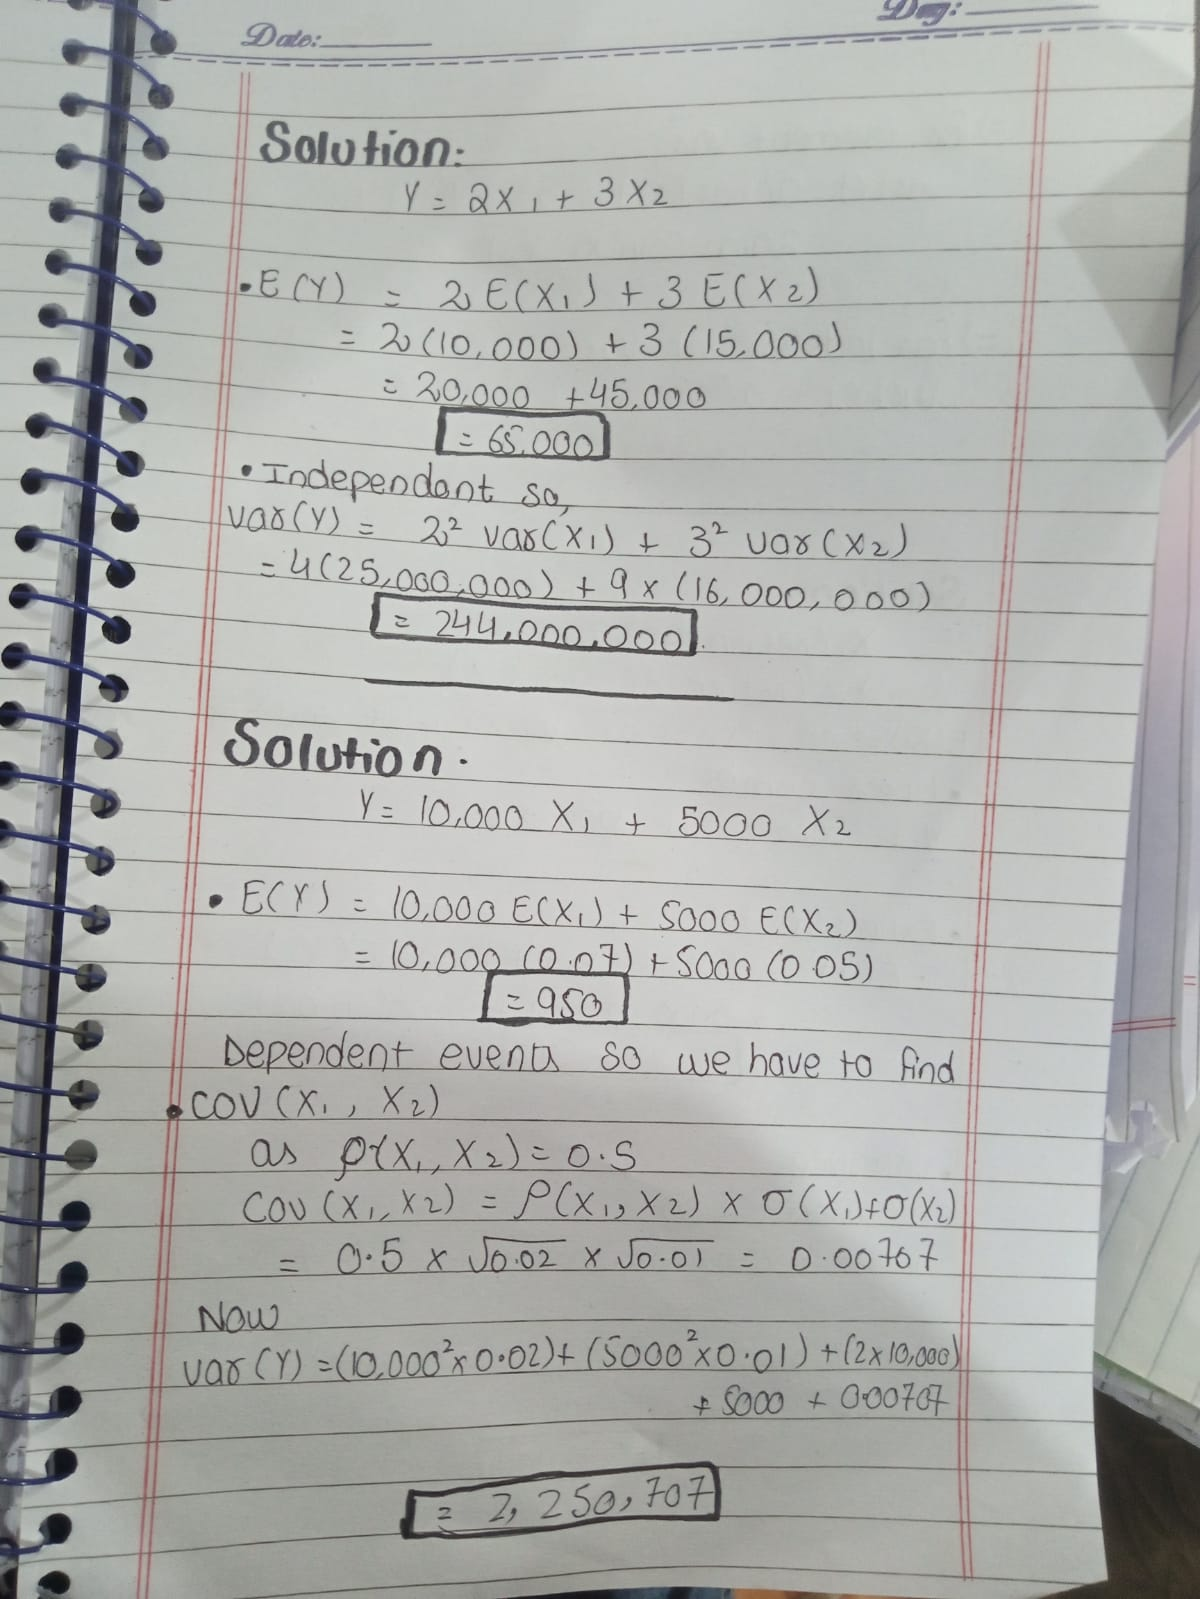 Date:
Day:
Solution:
Y = 2X1 + 3X2
• E(Y) = 2 E(X1) + 3 E(X2)
= 2(10,000) + 3 (15,000)
= 20,000 + 45,000
= 65,000
• Independent so,
var(Y) = 2² var(X1) + 3² var(X2)
= 4(25,000,000) + 9 × (16,000,000)
= 244,000,000
Solution.
Y = 10,000 X1 + 5000 X2
• E(Y) = 10,000 E(X1) + 5000 E(X2)
= 10,000 (0.07) + 5000 (0.05)
= 950
Dependent events so we have to find
• COV (X1, X2)
as ρ(X1, X2) = 0.5
COV (X1, X2) = ρ(X1, X2) × σ(X1) + σ(X2)
= 0.5 × √0.02 × √0.01 = 0.00707
Now
var (Y) = (10,000² × 0.02) + (5000² × 0.01) + (2×10,000)
+ 5000 + 0.00707
= 2,250,707